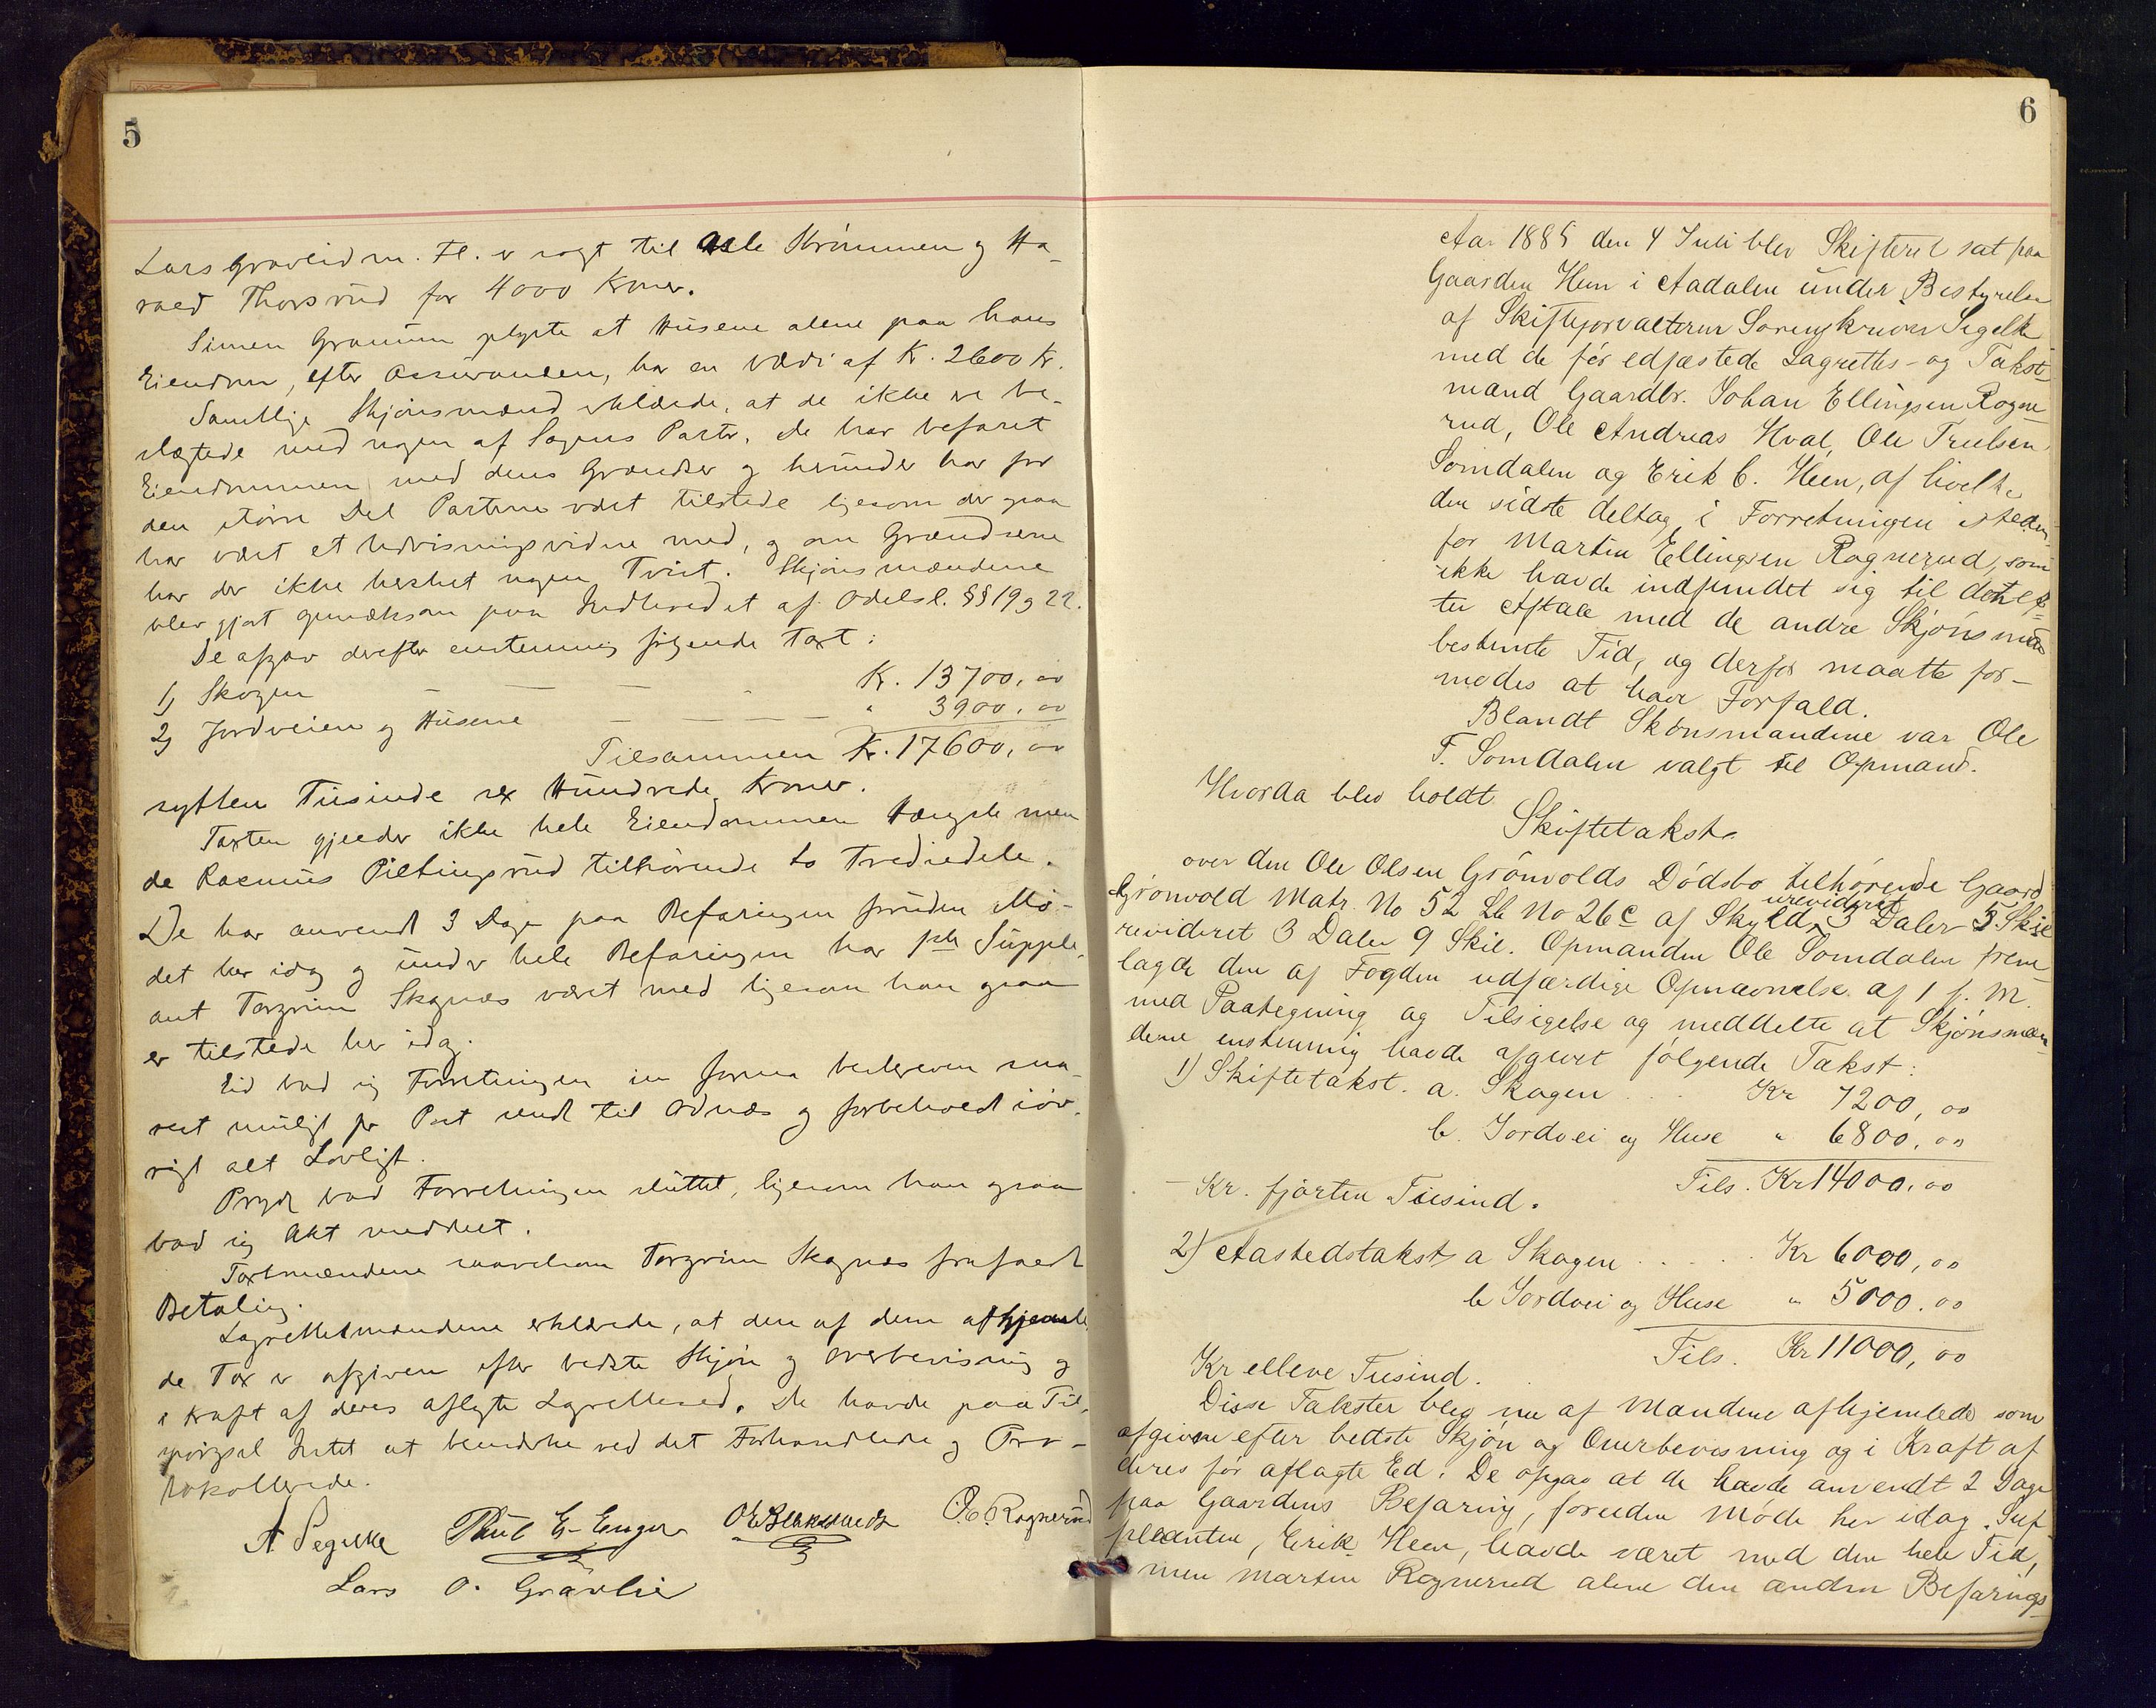 5
Lars Gravlid m. Fl. er solgt til Asle Strømmen og Ha-
rald Thorsrud for 4000 Kroner.
Simen oplyste at Husene alene paa hans
Eiendom, efter Assurancen, har en Værdi af Kr. 2600 Kr.
Samtlige Skjønsmænd erklærede, at de ikke ere be-
slægtede med nogen af Sagens Parter. De har befaret
Eiendommen med dens Grændser og herunder har for
den større Del Parterne været tilstede ligesom der ogsaa
har været et Udvisningsvidne med, og om Grændserne
har der ikke hersket nogen Tvist. Skjønsmændene
blev gjort opmærksom paa Indholdet af Odelsl. §§ 19 og 22.
De afgav derefter enstemmig følgende Taxt:
1) Skogen — — — " Kr. 13700,00
2) Jordveien og Husene — — — — " 3900,00
Tilsammen Kr. 17600,00
sytten Tusinde sex Hundrede Kroner.
Taxten gjælder ikke hele Eiendommen men
de Rasmus Piltingsrud tilhørende to Trediedele.
De har anvendt 3 Dage paa Befaringen foruden Mø-
det her idag og under hele Befaringen har 1ste Supple-
ant Torgrim Skagnæs været med ligesom han ogsaa
er tilstede her idag.
Eid bad sig Forretningen in forma beskreven sna-
rest muligt pr Post sendt til Odnæs og forbeholdt iøv-
rigt alt Lovligt.
Prydz bad Forretningen sluttet, ligesom han ogsaa
bad sig Akt meddelt.
Taxtmændene saavelsom Torgrim Skagnæs frafaldt
Betaling.
Lagrettemændene erklærede, at den af dem afhjemle-
de Tax er afgiven efter bedste Skjøn og Overbevisning og
i Kraft af deres aflagte Lagretteed. De havde paa Til-
spørgsel Intet at bemærke ved det Forhandlede og Pro-
tokollerede.
A Segelcke Paul E. Enger O. E. Rognerud
Lars O. Gravlie
6
Aar 1885 den 4 Juli blev Skifteret sat paa
Gaarden Hem i Aadalen under Bestyrelse
af Skifteforvalteren Sorenskriver Segelk
med de før edfæstede Lagrettes- og Takst-
mænd Gaardbr. Johan Ellingsen Rogne-
rud, Ole Andreas Hval, Ole Trulsen
Somdalen og Erik C. Heen, af hvilke
den sidste deltog i Forretningen isteden-
for Martin Ellingsen Rognerud, som
ikke havde indfundet sig til det ef-
ter Aftale med de andre Skjønsmæn
bestemte Tid, og derfor maatte for-
modes at have Forfald.
Blandt Skønsmændene var Ole
T. Somdalen valgt til Opmand.
Hvorda blev holdt
Skiftetakst
over den Ole Olsen Grønvolds Dødsbo tilhørende Gaard
Grønvold Matr. No 52 Lb No 26c af Skyld urevideret 3 Daler 5 Skil
revideret 3 Daler 9 Skil. Opmanden Ole Somdalen frem-
lagde den af Fogden udfærdige Opnævnelse af 1 f. M.
med Paategning og Tilsigelse og meddelte at Skjønsmæn-
dene enstemmig havde afgivet følgende Takst:
1) Skiftetakst. a. Skogen . . . Kr 7200,00
b. Jordvei og Huse " 6800,00
Tils. Kr 14000,00
Kr. fjorten Tusind.
2) Aastedstakst a Skogen . . . . Kr 6000,00
b Jordvei og Huse " 5000.00
Tils. Kr 11000,00
Kr elleve Tusind.
Disse Takster blev nu af Mændene afhjemlede som
afgivne efter bedste Skjøn og Overbevisning og i Kraft af
deres før aflagte Ed. De opgav at de havde anvendt 2 Dage
paa Gaardens Befaring, foruden Møde her idag. Sup-
pleanten, Erik Heen, havde været med den hele Tid,
men Martin Rognerud alene den anden Befarings-